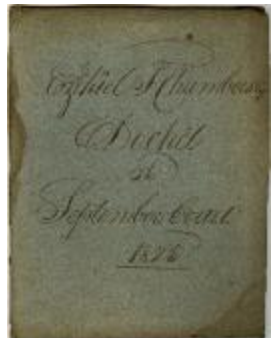 Ezekiel F Chambers
Docket
at
September Court
1826